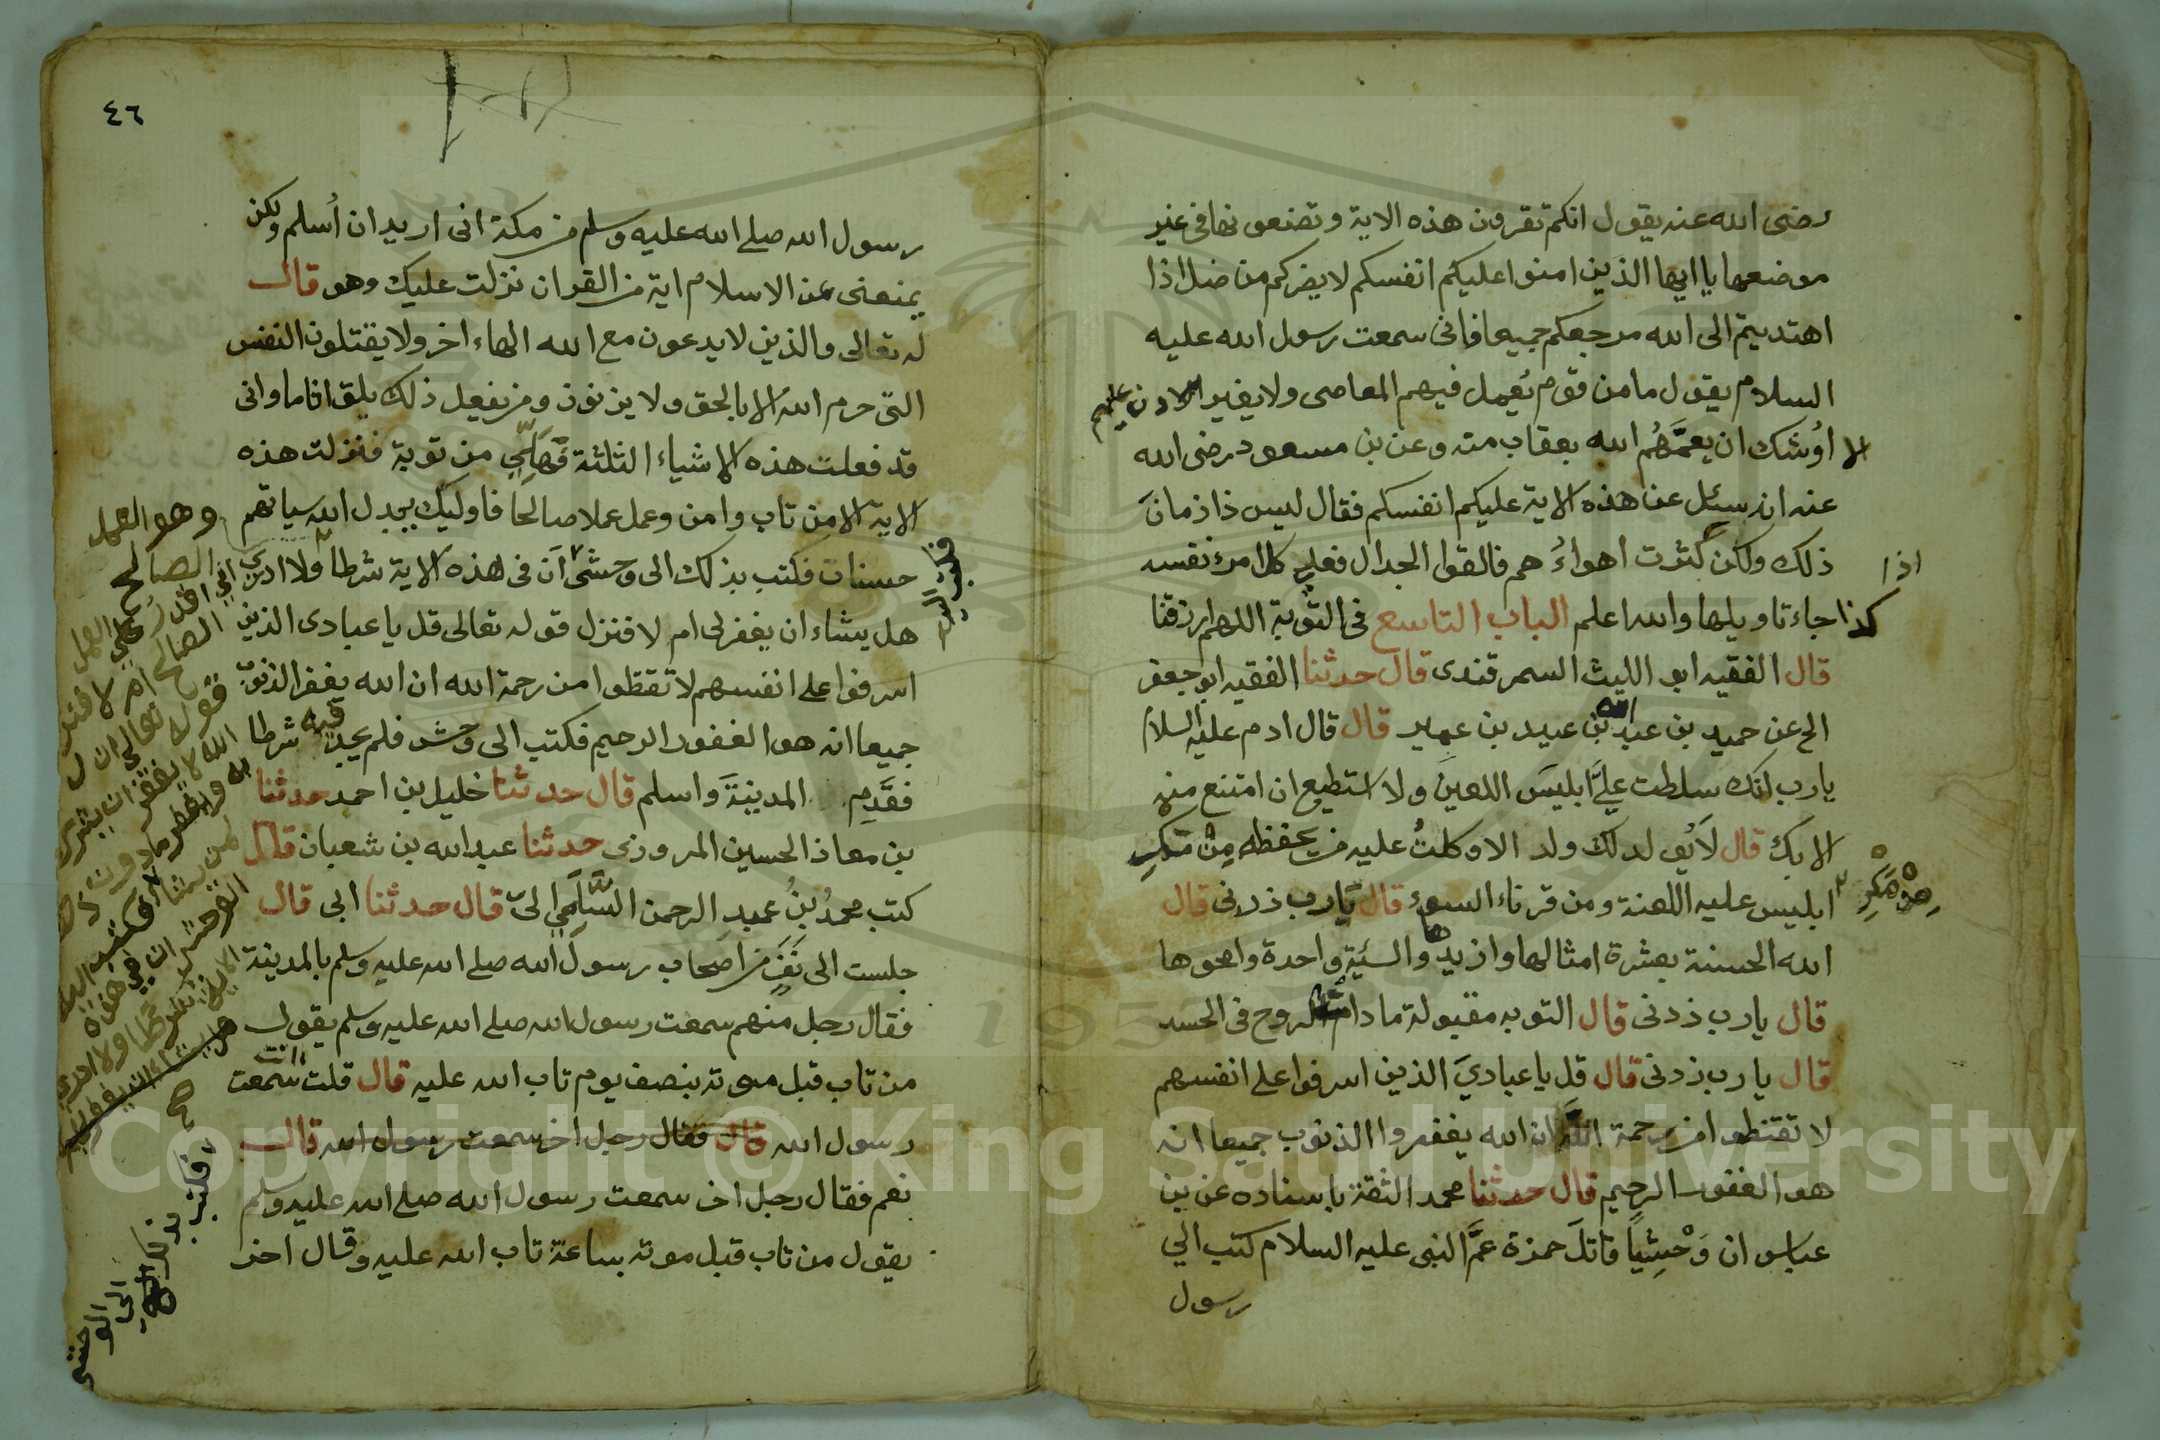 رضى الله عنه يقول انكم تقرون هذه الاية وتضعونها فى غير
موضعها يا ايها الذين امنوا عليكم انفسكم لا يضركم من ضل اذا
اهتديتم الى الله مرجعكم جميعا فانى سمعت رسول الله عليه
السلام يقول ما من قوم يُعمل فيهم المعاصى ولا يغير
عليهم
الا اوُشك ان يعمَّهُم الله بعقاب منه وعن بن مسعود رضى الله
عنه انه سئل عن هذه الاية عليكم انفسكم فقال ليس ذا زمانَ
ذلك ولكن كثرت اهواءُ هم فالقوا الجدال فعلى كل امرء نفسه
اذا
كذا جاء تاويلها والله اعلم الباب التاسع فى التوبة اللهم ارزقنا
قال الفقيه ابو الليث السمرقندى قال حدثنا الفقيه ابو جعفر
الخ عن حميد بن عبد الله بن عبيد بن عمير قال قال ادم عليه السلام
يا رب انك سلطت عليَّ ابليسَ اللعينَ ولا استطيع ان امتنع منه
الا بك قال لا يُولد لك ولد الا وكلتُ عليه من يحفظه مِنْ مَكرِ
مِنْ مَكرِ
ابليس عليه اللعنة ومن قرناء السوء قال يَا رب زدنى قال
الله الحسنة بعشرة امثالها وازيد والسيئة واحدة وامحوها
قال يا رب زدنى قال التوبه مقبولة ما دام الروح فى الجسد
قال يا رب زدنى قال قل يا عباديَ الذين اسرفوا على انفسهم
لا تقنطوا من رحمة الله ان الله يغفروا الذنوب جميعا انه
هو الغفور الرحيم قال حدثنا محمد الثقة باسناده عن بن
عباس ان وَحْشِياً قاتلَ حمزة عمَّ النبى عليه السلام كتب الي
رسول
٤٦
رسول الله صلى الله عليه وسلم من مكة انى اريد ان اُسلم ولكن
يمنعنى عن الاسلام اية من القران نزلت عليك وهو قال
له تعالى والذين لا يدعون مع الله الهاء اخر ولا يقتلون النفس
التى حرم الله الا بالحق ولا يزنون ومن يفعل ذلك يلق اثاما وانى
قد فعلت هذه الاشياء الثلثة فَهَل لِّي من توبة فنزلت هذه
الاية الا من تاب وامن وعمل عملا صالحا فاوليك يبدل الله سياتهم
حسنات فكتب بذلك الى وحشى ان فى هذه الاية شرطا ولا ادرى
هل يشاء ان يغفر لى ام لا فنزل قوله تعالى قل يا عبادى الذين
اسرفوا على انفسهم لا تقنطوا من رحمة الله ان الله يغفر الذنوب
جميعا انه هو الغفور الرحيم فكتب الى وحش فلم يجد فيه شرطا
فقَدِم المدينةَ واسلم قال حدثنا خليل بن احمد حدثنا
بن معاذ الحسين المروزى حدثنا عبد الله بن شعبان قال
كتب محمدُ بنُ عبد الرحمن السَّلَمِي الىّ قال حدثنا ابى قال
جلست الى نَفَرٍ من اصحاب رسول الله صلى الله عليه وسلم بالمدينة
فقال رجل منهم سمعت رسول الله صلى الله عليه وسلم يقول
من تاب قبل موته بنصف يوم تاب الله عليه قال قلت انت سمعت
رسول الله قال فقال رجل اخر سمعت رسول الله قال
نعم فقال رجل اخر سمعت رسول الله صلى الله عليه وسلم
يقول من تاب قبل موته بساعة تاب الله عليه وقال اخر
فكتب اليه
وهو العمل
الصالح
فكتب بذلك
الى الوحشى
Copyright © King Saud University
1957